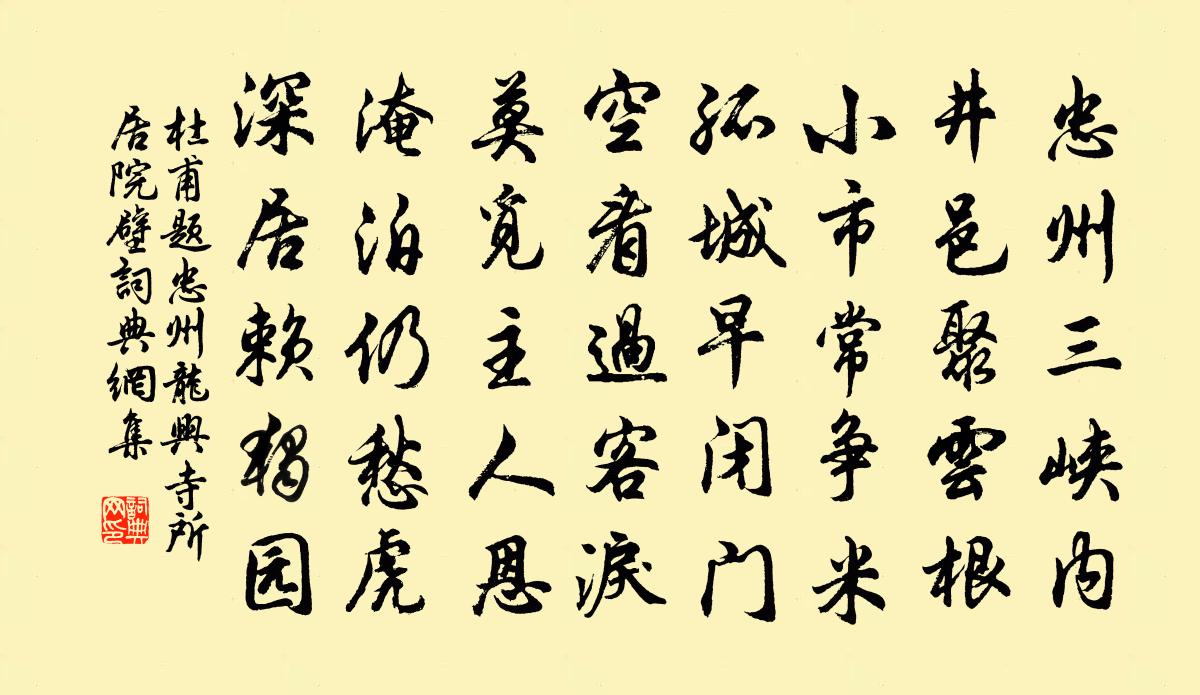 忠州三峡内
井邑聚雲根
小市常争米
孤城早闭门
空看過客淚
莫覓主人恩
淹泊仍愁虎
深居赖独园
杜甫題忠州龍興寺所
居院壁詞典網集
詞典
网印